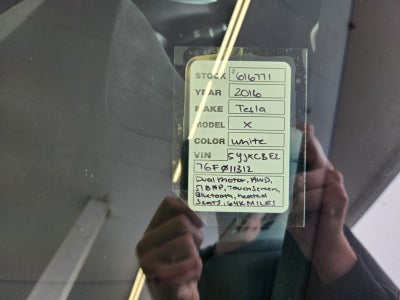 STOCK #616771
YEAR 2016
MAKE Tesla
MODEL X
COLOR White
VIN 5YJXCBE2
7GF011312
Dual Motor, AWD,
518HP, Touchscreen,
Bluetooth, heated
Seats, 64K MILES